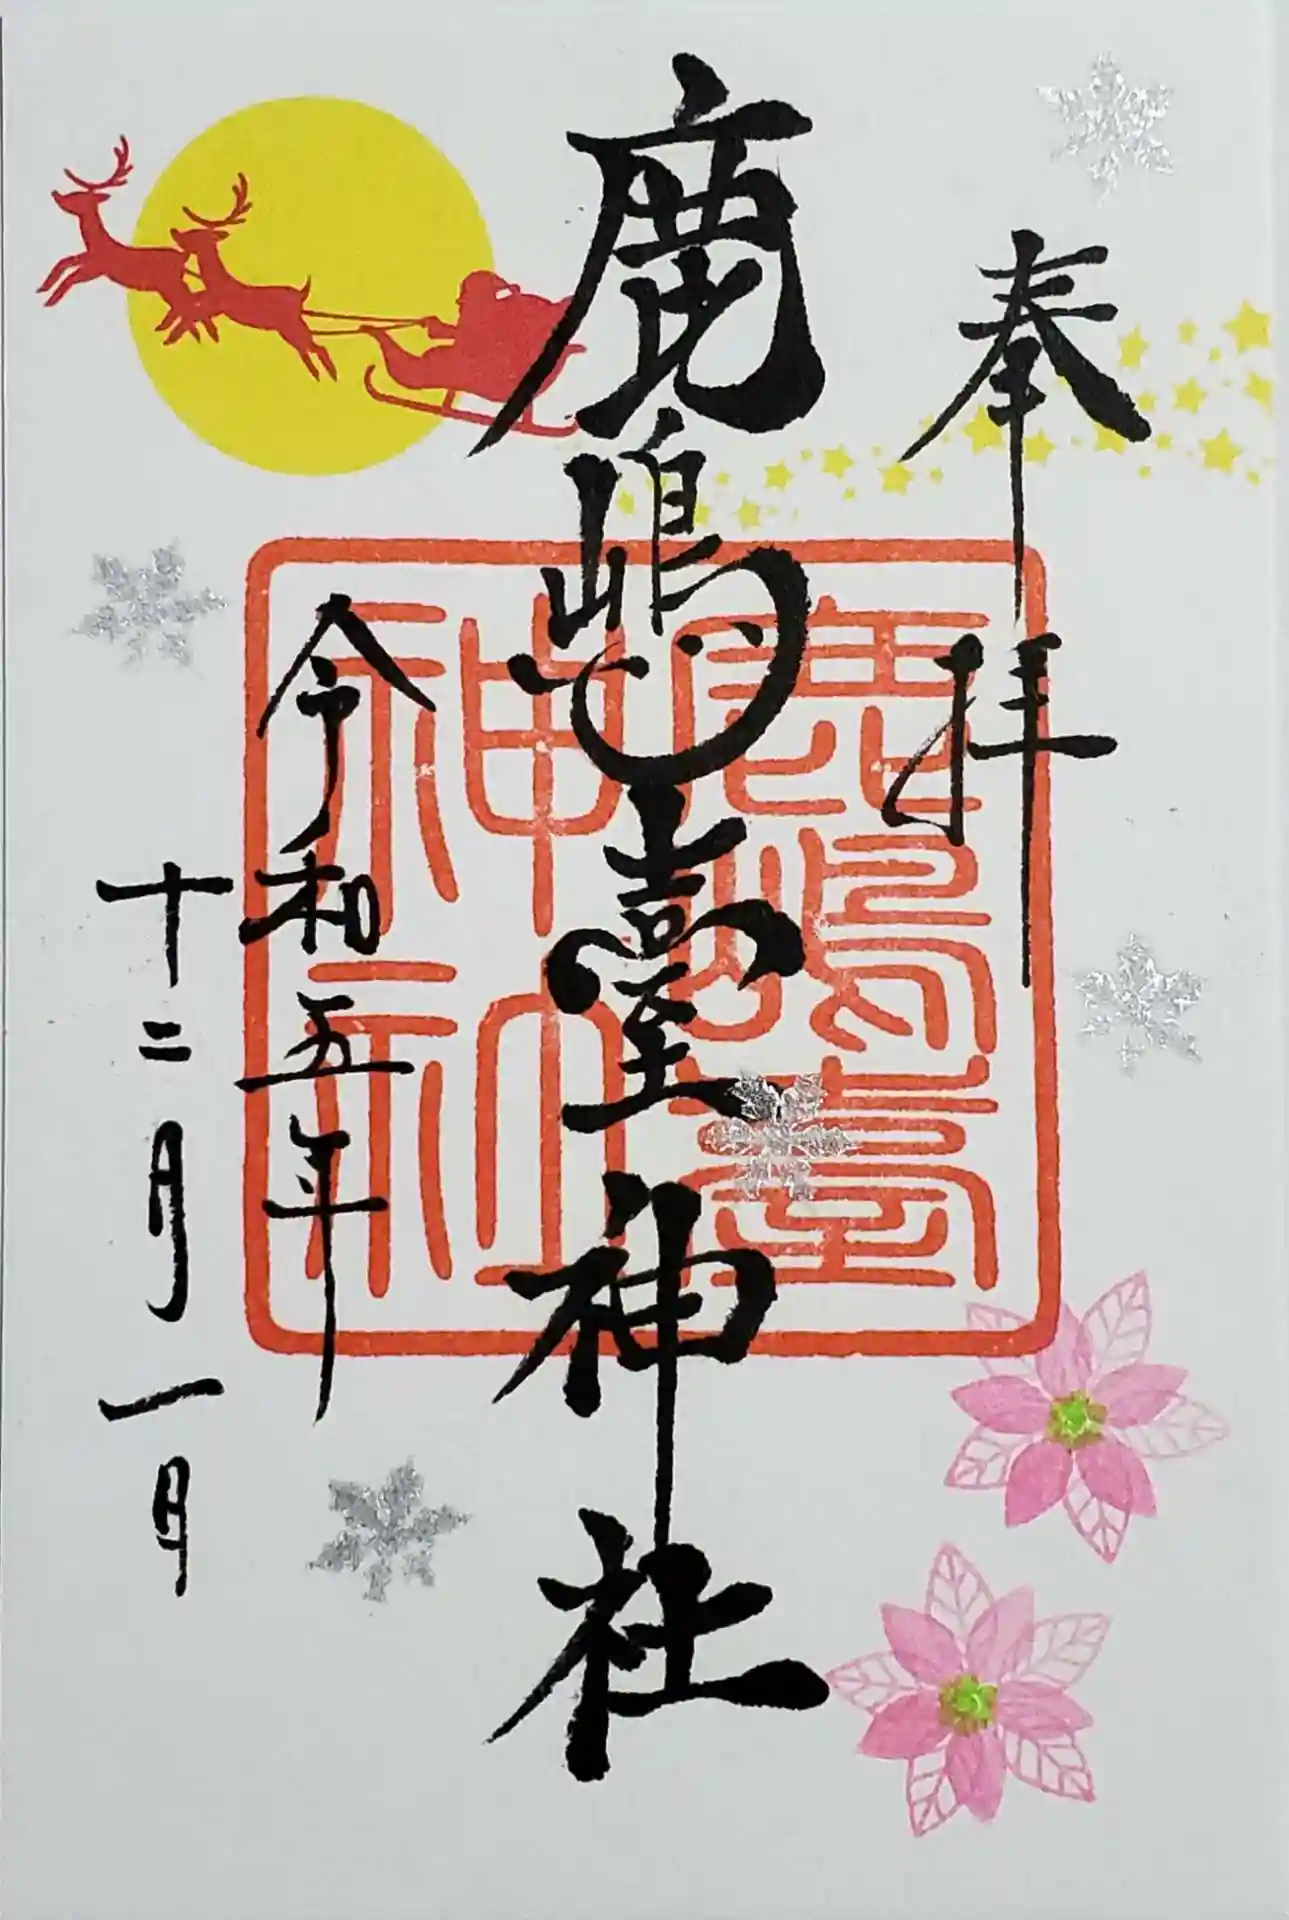 奉拝
鹿嶋臺神社
鹿嶋臺
神社
令和五年
十二月一日